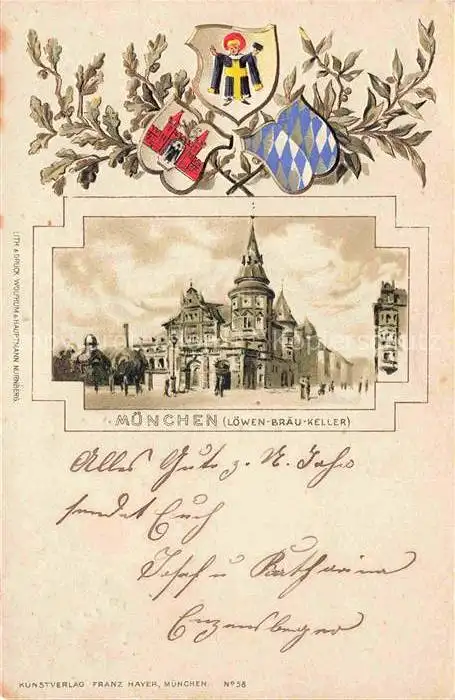 MÜNCHEN (LÖWEN-BRÄU-KELLER)
LITH. & DRUCK WOLFRUM & HAUPTMANN NÜRNBERG.
Alles Gute z. N. Jahr
sendet Euch
Josef u Katharina
Enzensberger
KUNSTVERLAG FRANZ HAYER, MÜNCHEN. No 38